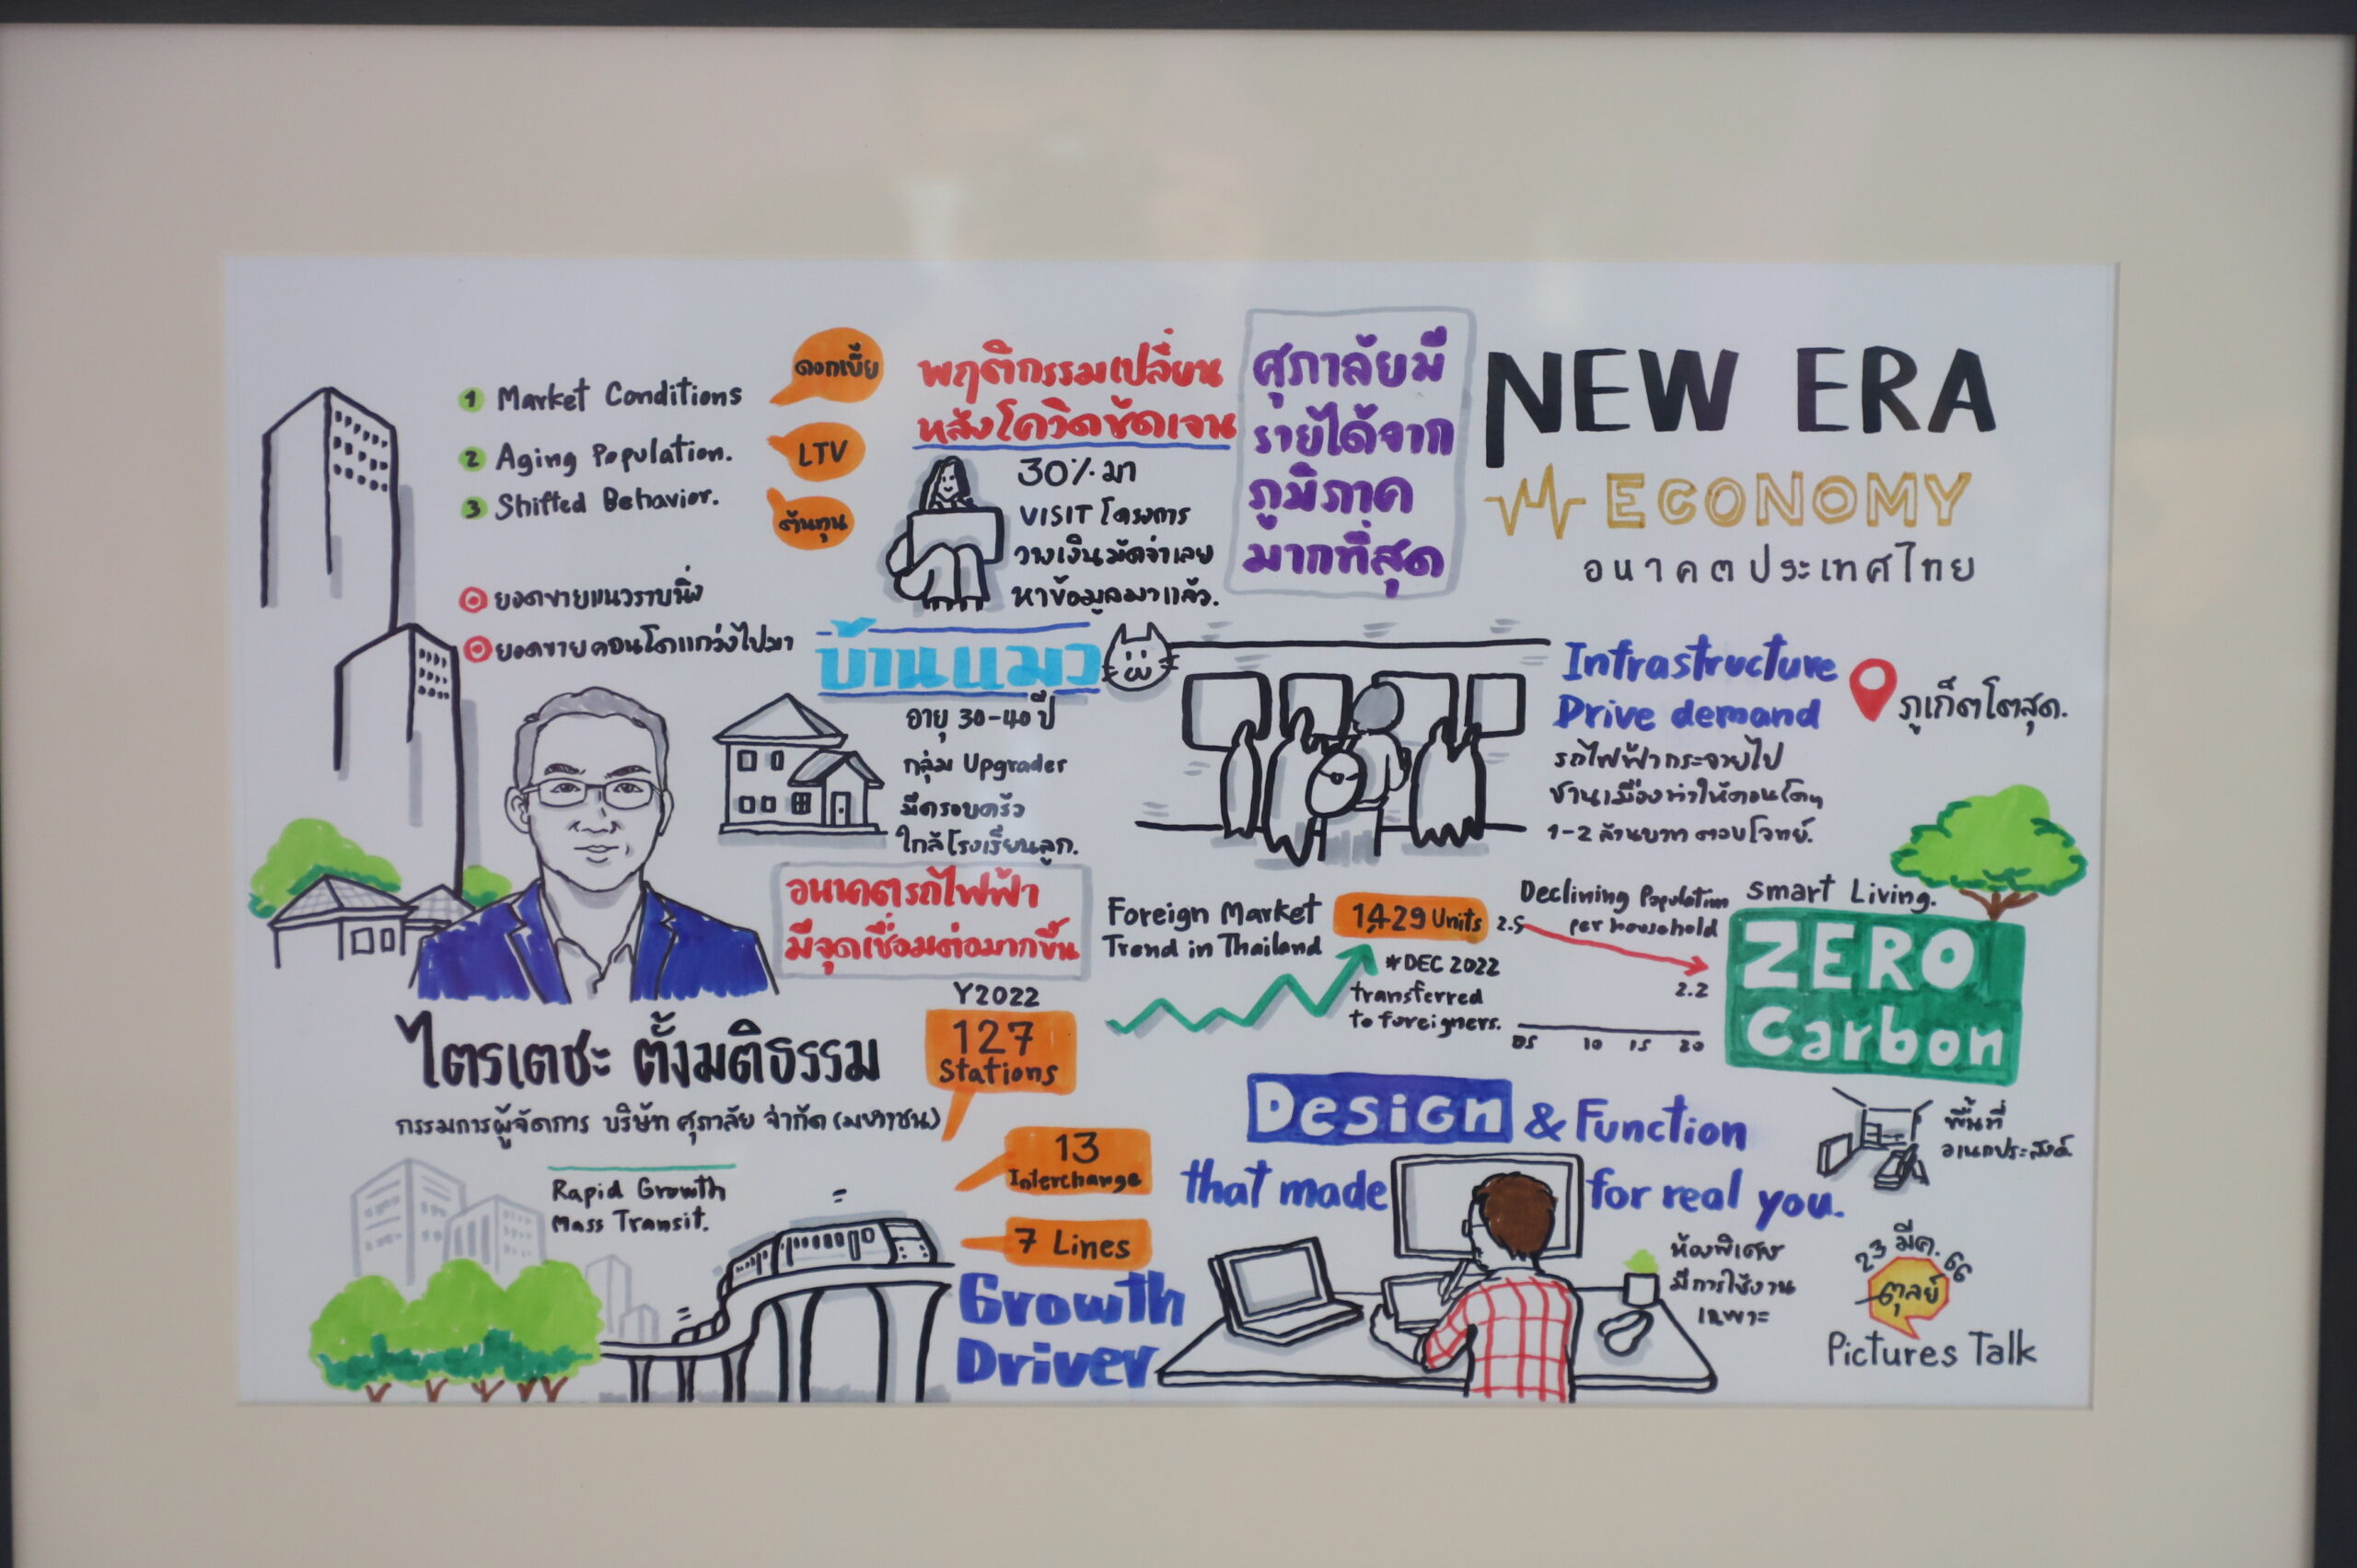 NEW ERA
ECONOMY
อนาคตประเทศไทย
1 Market Conditions
2 Aging Population.
3 Shifted Behavior.
ดอกเบี้ย
LTV
ต้นทุน
ยอดขายแนวราบนิ่ง
ยอดขายคอนโดแกว่งไปมา
พฤติกรรมเปลี่ยน
หลังโควิดชัดเจน
30% มา
VISIT โครงการ
วางเงินมัดจำเลย
หาข้อมูลมาแล้ว.
ศุภาลัยมี
รายได้จาก
ภูมิภาค
มากที่สุด
บ้านแมว
อายุ 30-40 ปี
กลุ่ม Upgrader
มีครอบครัว
ใกล้โรงเรียนลูก.
Infrastructure
Drive demand
รถไฟฟ้ากระจายไป
ชานเมืองทำให้คอนโดฯ
1-2 ล้านบาท ตอบโจทย์.
ภูเก็ตโตสุด.
อนาคตรถไฟฟ้า
มีจุดเชื่อมต่อมากขึ้น
ไตรเตชะ ตั้งมติธรรม
กรรมการผู้จัดการ บริษัท ศุภาลัย จำกัด (มหาชน)
Rapid Growth
Mass Transit.
Y2022
127
Stations
13
Interchange
7 Lines
Growth
Driver
Foreign Market
Trend in Thailand
1,429 Units
*DEC 2022
transferred
to foreigners.
Declining Population
per household
2.5
2.2
05 10 15 20
Smart Living.
ZERO
Carbon
Design & Function
that made for real you.
พื้นที่
อเนกประสงค์
ห้องพิเศษ
มีการใช้งาน
เฉพาะ
23 มีค. 66
ตุลย์
Pictures Talk